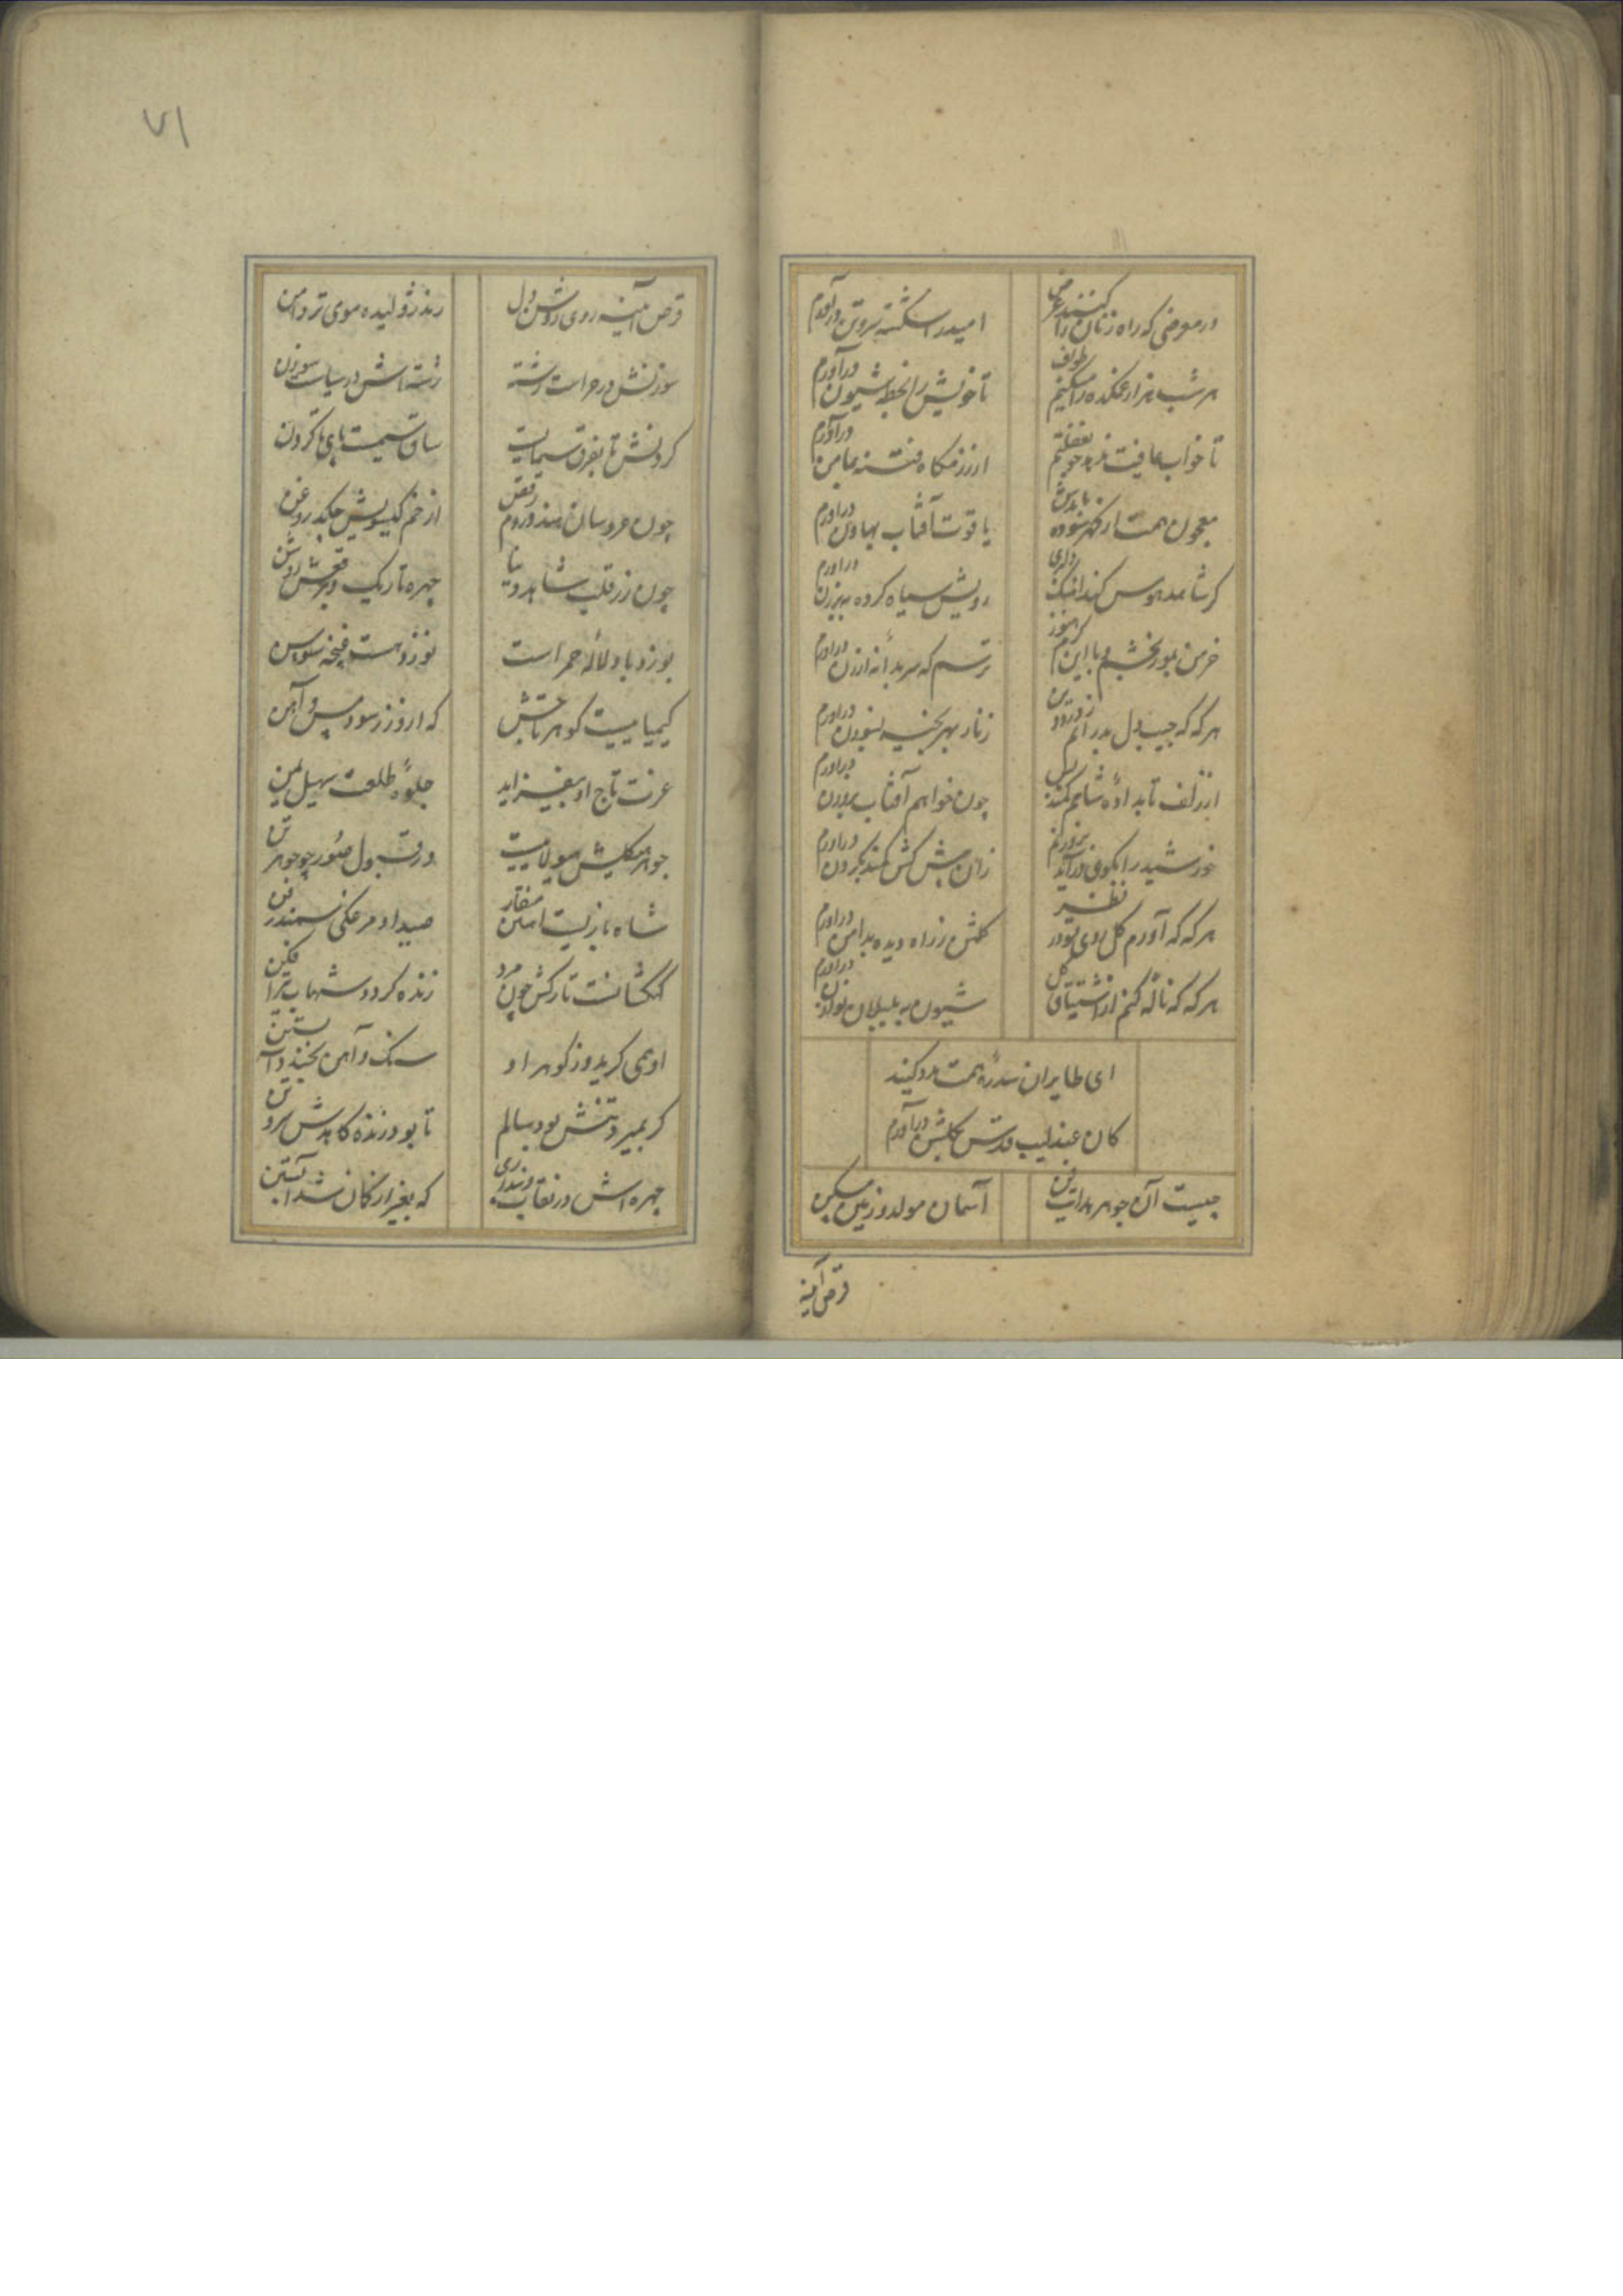 در معرضی که راه زنان را کنند عرض
امید را شکسته بروتن درآورم
هر شب هزار غمکده را میکنیم طواف
تا خویش را بخطهٔ شیون درآورم
تا خواب عافیت
ارزرمکاه فتنه بمامن درآورم
معجون همت ارنکهر سوده بایدش
یاقوت آفتاب بهاون دراورم
کر شاهد هوس کند
رویش سیاه کرده ببرزن دراورم
خرمن بمور بخشم و با این کرم هنوز
ترسم که سر بدانهٔ ارزن دراورم
هر که که جیب دل بدرانم
زنار بهر بخیه بسوزن دراورم
از زلف تابداده شامم کمند بس
چون خواهم آفتاب بروزن دراورم
خورشید را بکوی
زان پیش کش کمند بکردن دراورم
هر که که آورم کل روی تو در نظر
کلشن ز راه دیده بدامن دراورم
هر که که ناله کنم از اشتیاق کل
شیون به بلبلان نوازن دراورم
ای طایران سدره همت مدد کنید
کان عندلیب قدس بکلشن درآورم
چیست آن جوهر
آسمان مولد و زمین مسکن
قرص آینه
۷۱
قرص آینه روی روشن دل
رند ژولیده موی تر دامن
سوزنش در حراست رشته
رشته اش در سیاست سوزن
کردنش تا بفرق سیمابیست
ساق سیمست پای تا کردن
چون عروسان هند و روم برقص
از خم کیسویش چکد روغن
چون زر قلب شاهد دنیا
چهره تاریک و برقعش روشن
بوزد باد و لالهٔ حمر است
نوزد هست غنچهٔ سوسن
کیمیاییست کوهر تاجش
که ازو زر سود مس و آهن
عزت تاج او بیفزاید
جلوهٔ طلعت سهیل یمن
جوهر هیکلش هیولاییست
در قبول صور چو جوهر تن
شاه بازیست آتشین منقار
صید او مرغکی سمندر فن
کهکشانست تارکش چون مرد
زنده کردد شهاب تیرافکن
او همی کرید و ز کوهر او
سنک و آهن بخندد
کر بمیرد تنش بود سالم
تا بود زنده کاهدش سر و تن
چهره اش در نقاب
که بغیر از کان نشد آبستن